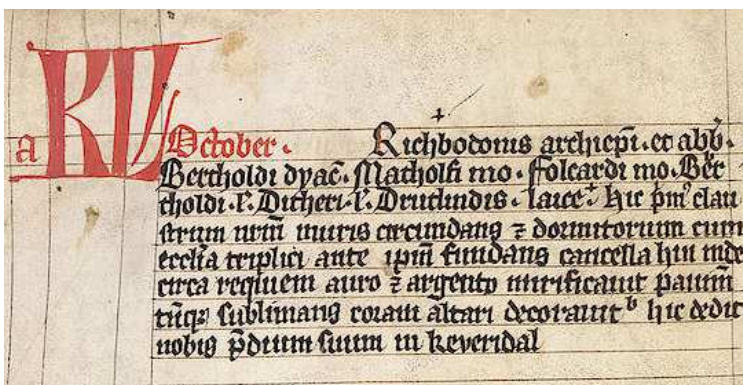 a KL October. Richbodonis archiep̄i. et abb̄.
Bertholdi dyac̄. Macholfi mo. Folcardi mo. Ber
tholdi. l'. Ditheri. l'. Drutlindis. laice. hic pm' clau
strum nr̄m muris circundans ⁊ dormitorium cum
eccl̄ia triplici ante ip̄m fundans cancella hin inde
circa requiem auro ⁊ argento mirificauit pauim̄
tūqꝫ sublimans coram altari decorauit b hic dedit
nobis p̄dium suum in keueridal